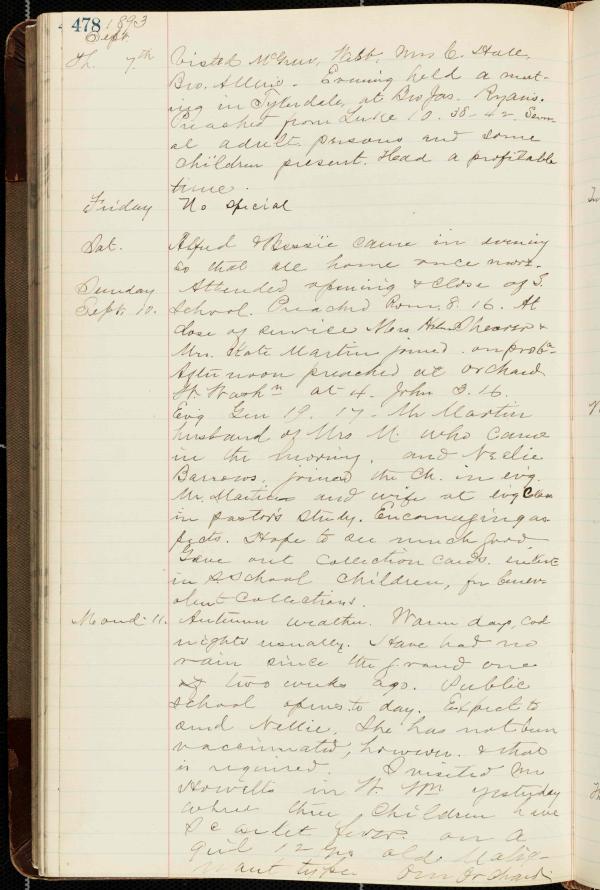 478 1893
Sept.
Th. 7th Visited McGrew, Mrs C. Hall,
Bro. Evening held a meet-
ing in Tylerdale, at Bro Jas. Ryans.
Preached from Luke 10. 38-42. Sever-
al adult persons and some
children present. Had a profitable
time.
Friday No special
Sat. Alfred & Bessie came in evening
so that all home once more.
Sunday Attended opening & close of S.
Sept. 10. School. Preached Rom. 8. 16. At
close of service Mrs Shearer &
Mrs. Kate Martin joined on proba-
Afternoon preached at orchard
W. Washn at 4. John 3. 16.
Evg Gen 19. 17. Mr Martin
husband of Mrs M. who came
in the morning, and Nellie
Barrows, joined the Ch. in evg.
Mr. Martin and wife at evg Class
in pastor's study. Encouraging as-
pects. Hope to see much good
Gave out collection cards
in S School children, for benev-
olent collections.
Mond. 11. Autumn weather. Warm days, cool
nights usually. Have had no
rain since the grand one
two weeks ago. Public
school opens to day. Expect to
send Nellie. She has not been
vaccinated, however. & that
is required. I visited Mr
Howells in W. Wn yesterday
where three children have
Scarlet fever. on a
girl 12 yrs old. Malig-
nant type. Om Orchard